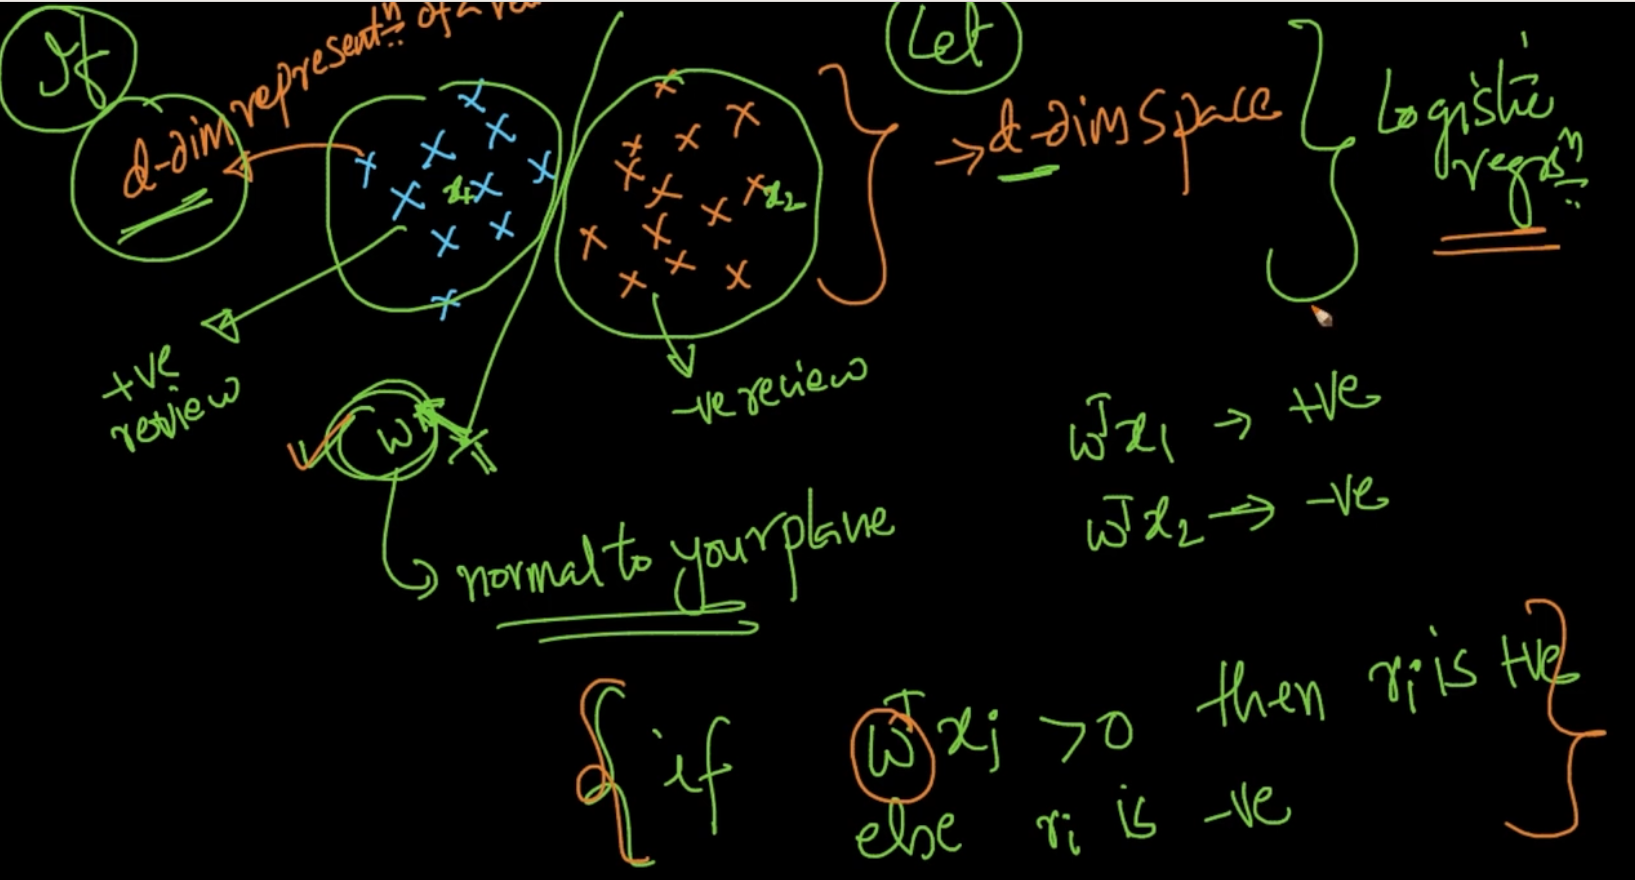 If
d-dim represent.ⁿ of a
Let
→ d-dim space
Logistic
regrsⁿ
x₁
x₂
+ve
review
-ve review
w
normal to your plane
wᵀx₁ → +ve
wᵀx₂ → -ve
if wᵀxᵢ >0 then rᵢ is +ve
else rᵢ is -ve